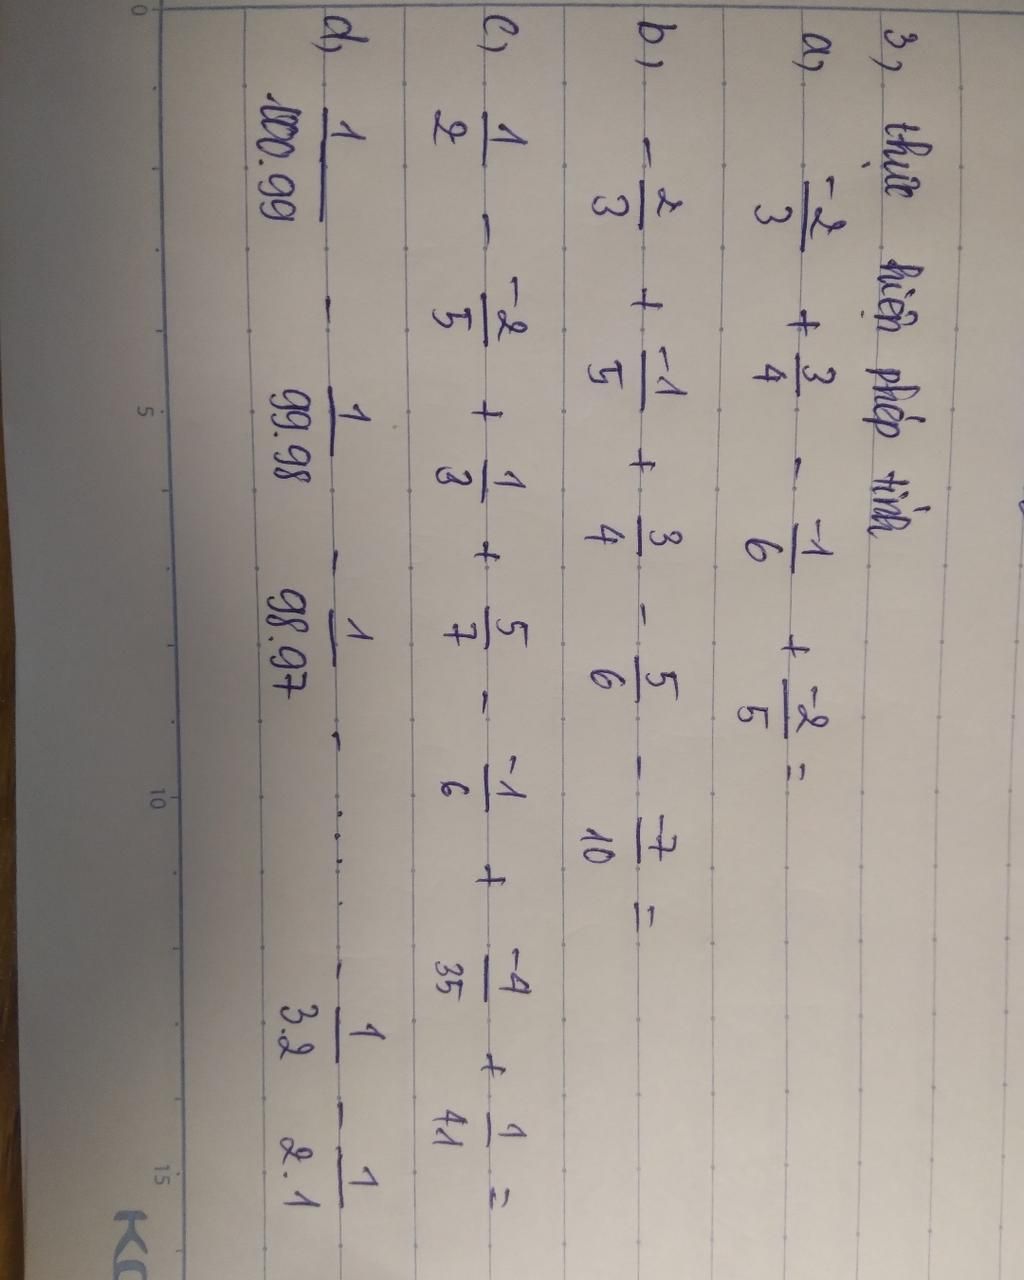 3, thực hiện phép tính
a, -2/3 + 3/4 - -1/6 + -2/5 =
b, - 2/3 + -1/5 + 3/4 - 5/6 - -7/10 =
c, 1/2 - -2/5 + 1/3 + 5/7 - -1/6 + -4/35 + 1/41 =
d, - 1/99.98 - 1/98.97 - ..... - 1/3.2 - 1/2.1
0 5 10 15